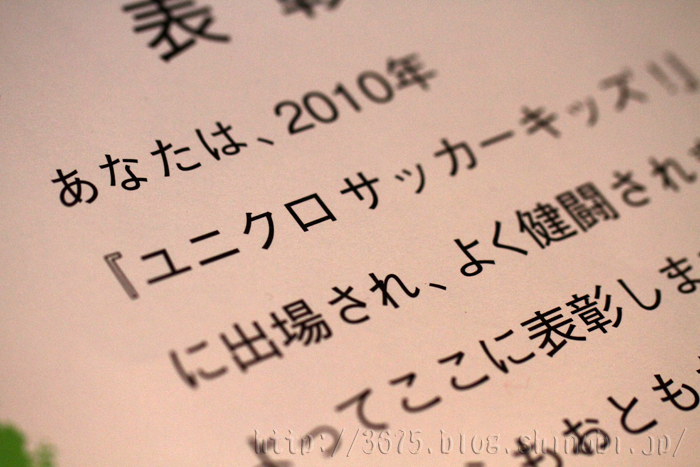 表彰
あなたは、2010年
『ユニクロサッカーキッズ!』
に出場され、よく健闘され
ってここに表彰しま
おおとも
http://3675.blog.shinobi.jp/